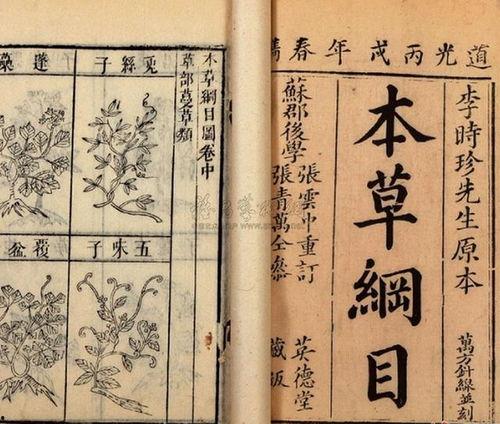 道光丙戌年春鐫
李時珍先生原本
萬方針線並刻
本草綱目
蘇郡後學
張雲中重訂
張青萬仝參
英德堂
藏板
本草綱目圖卷中
草部蔓草類
菟絲子
五味子
蓬蘽
覆盆